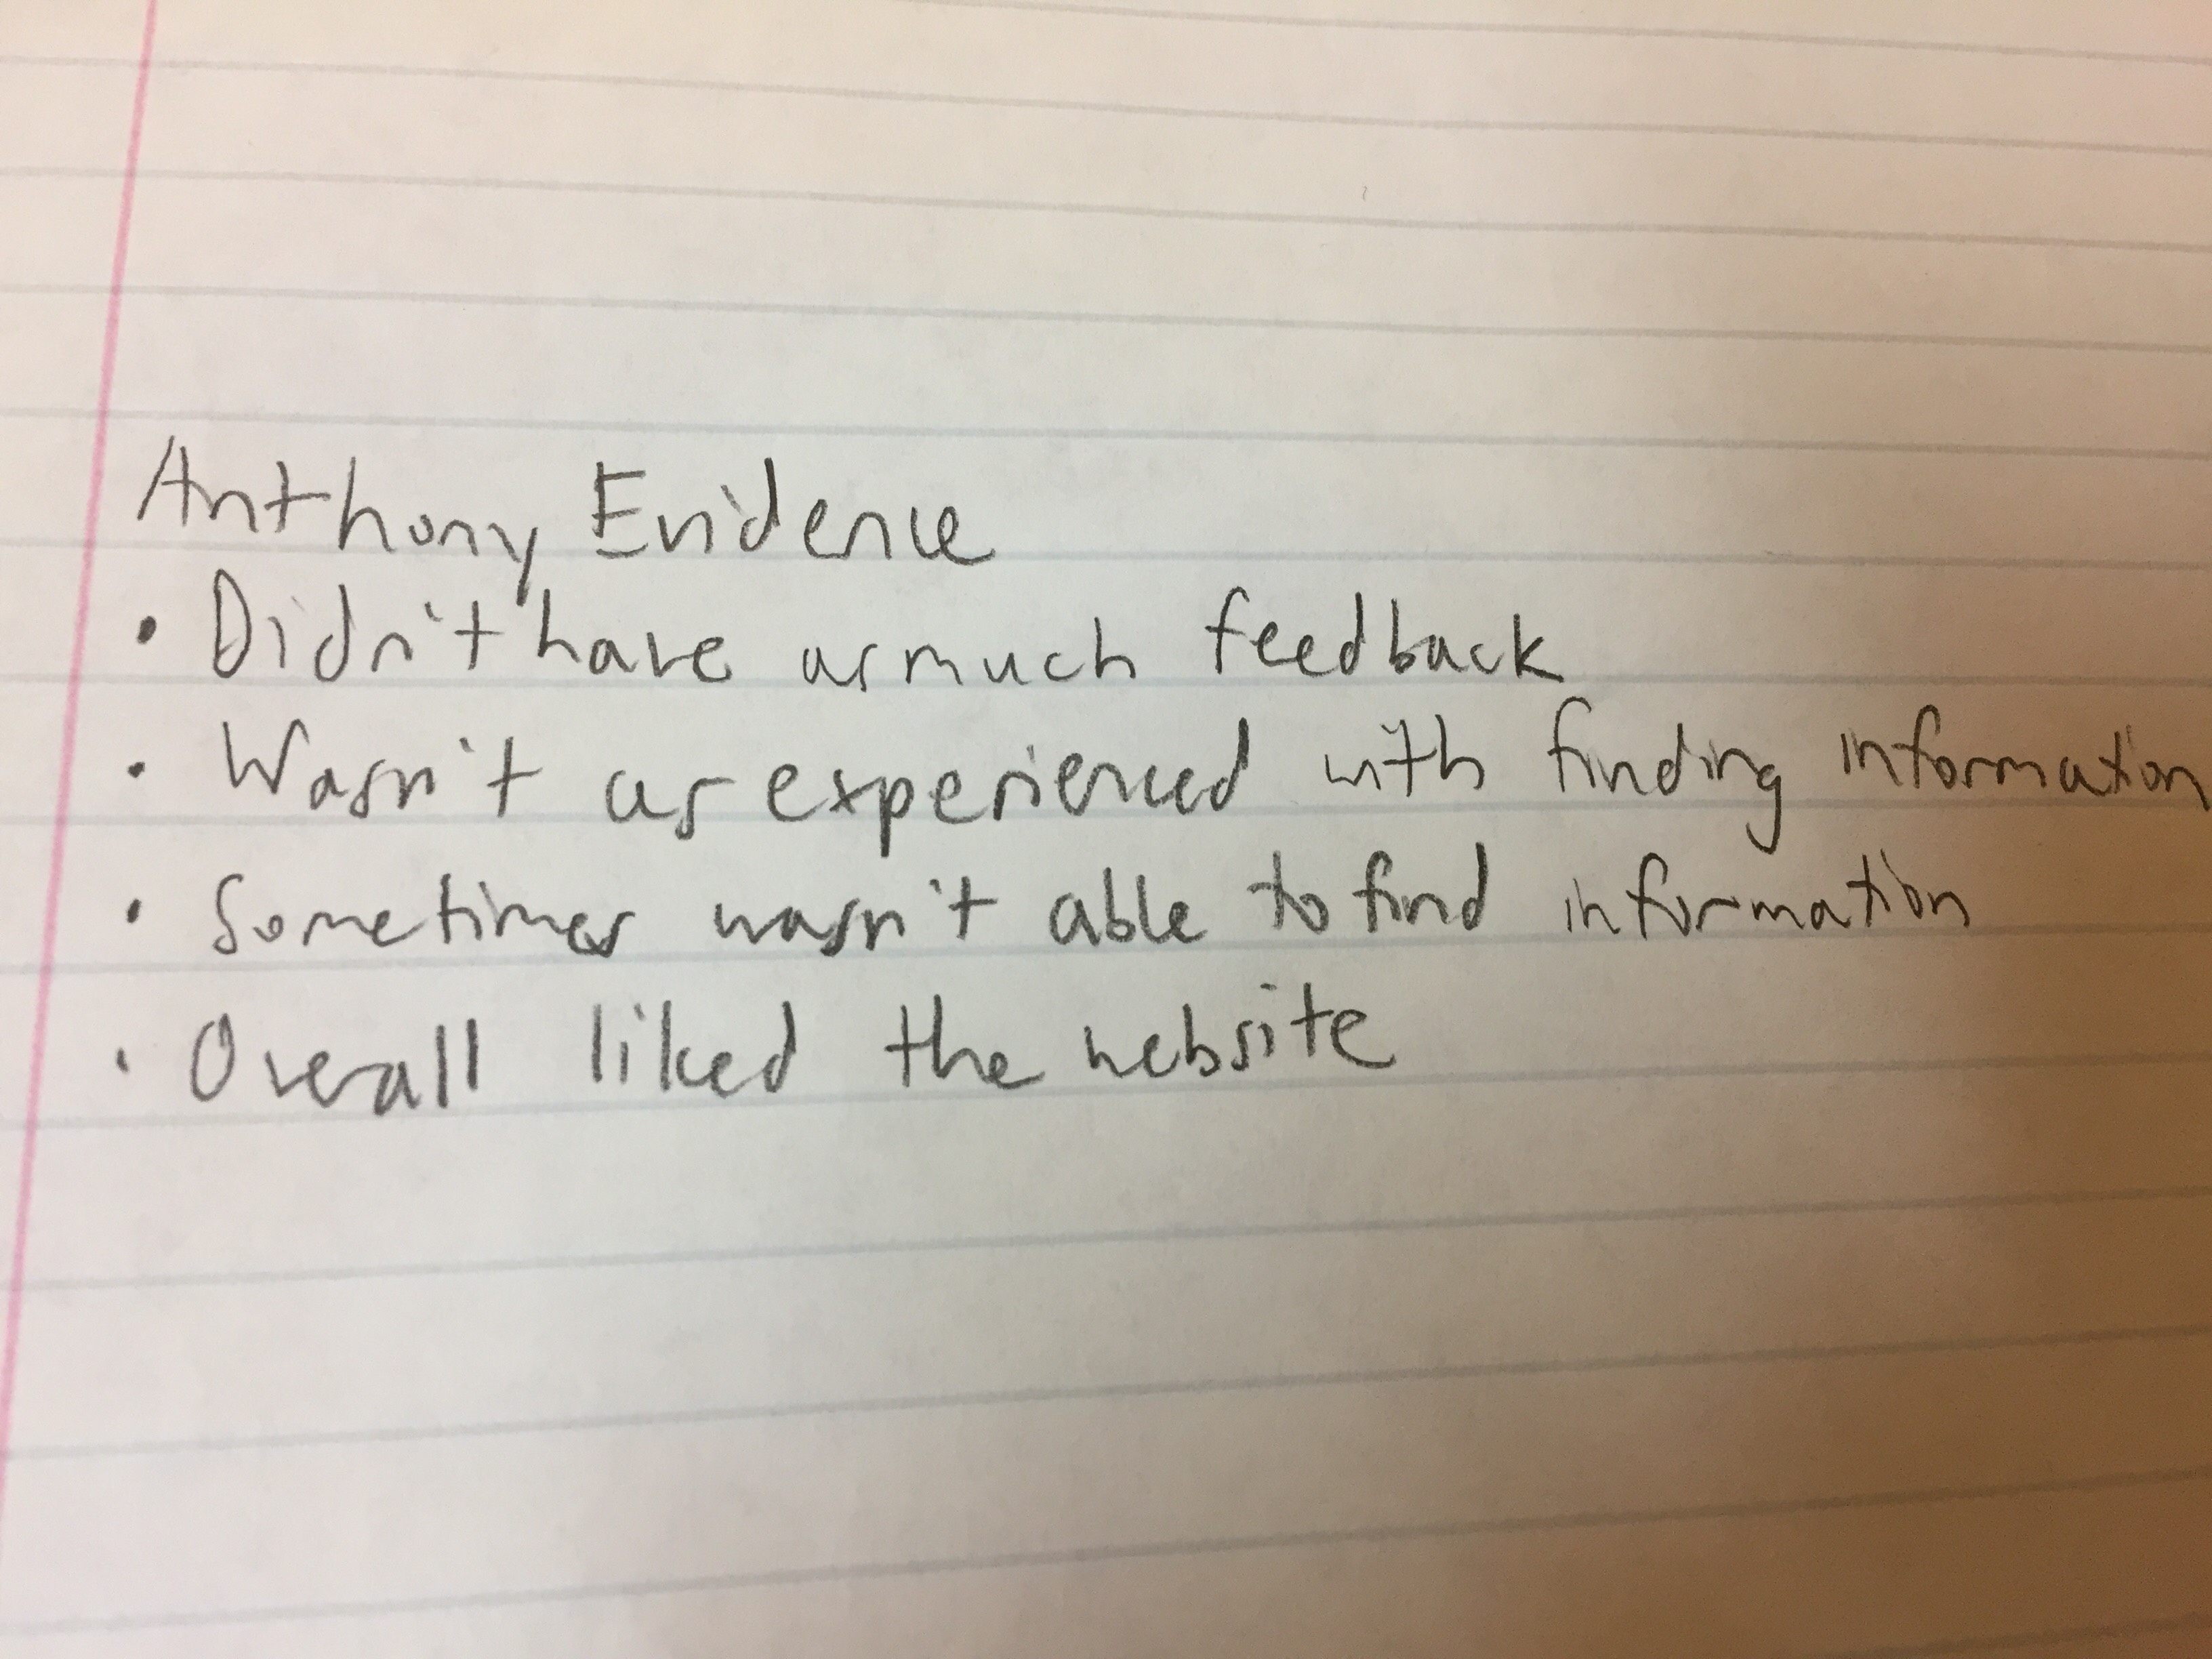 Anthony Evidence
• Didn't have as much feedback
• Wasn't as experienced with finding information
• Sometimes wasn't able to find information
• Overall liked the website